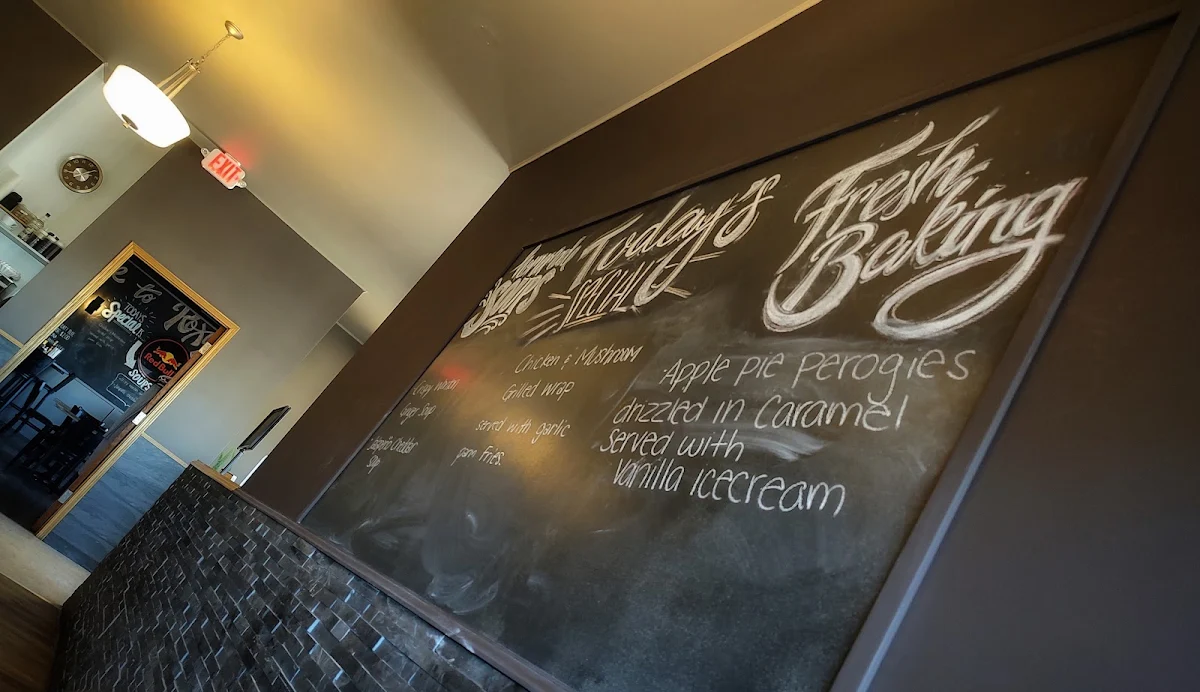 Soups
Ginger Soup
Jalapeño Cheddar
Soup
Today's
SPECIAL
Chicken & Mushroom
Grilled wrap
served with garlic
parm fries.
Fresh
Baking
Apple pie perogies
drizzled in caramel
served with
vanilla icecream
EXIT
to
TODAY'S
Specials
Red Bull
SOUPS